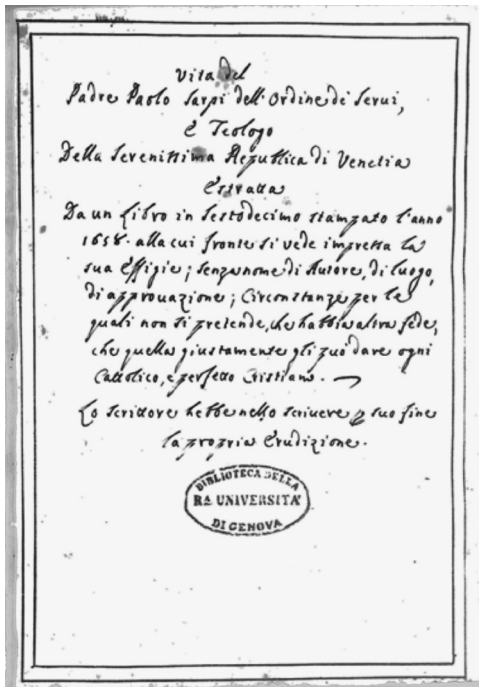 Vita del
Padre Paolo Sarpi dell'Ordine de' Serui,
È Teologo
Della Serenissima Republica di Venetia
Estratta
Da un Libro in Sestodecimo stampato l'anno
1658. alla cui fronte si vede impressa la
sua Effigie; senza nome di Autore, di luogo,
di approuazione; Circonstanze per le
quali non si pretende, che habbia altra fede,
che quella giustamente gli può dare ogni
Cattolico, e perfetto Cristiano.
Lo scrittore hebbe nello scriuere p suo fine
la propria Erudizione.
BIBLIOTECA DELLA
RA UNIVERSITA'
DI GENOVA